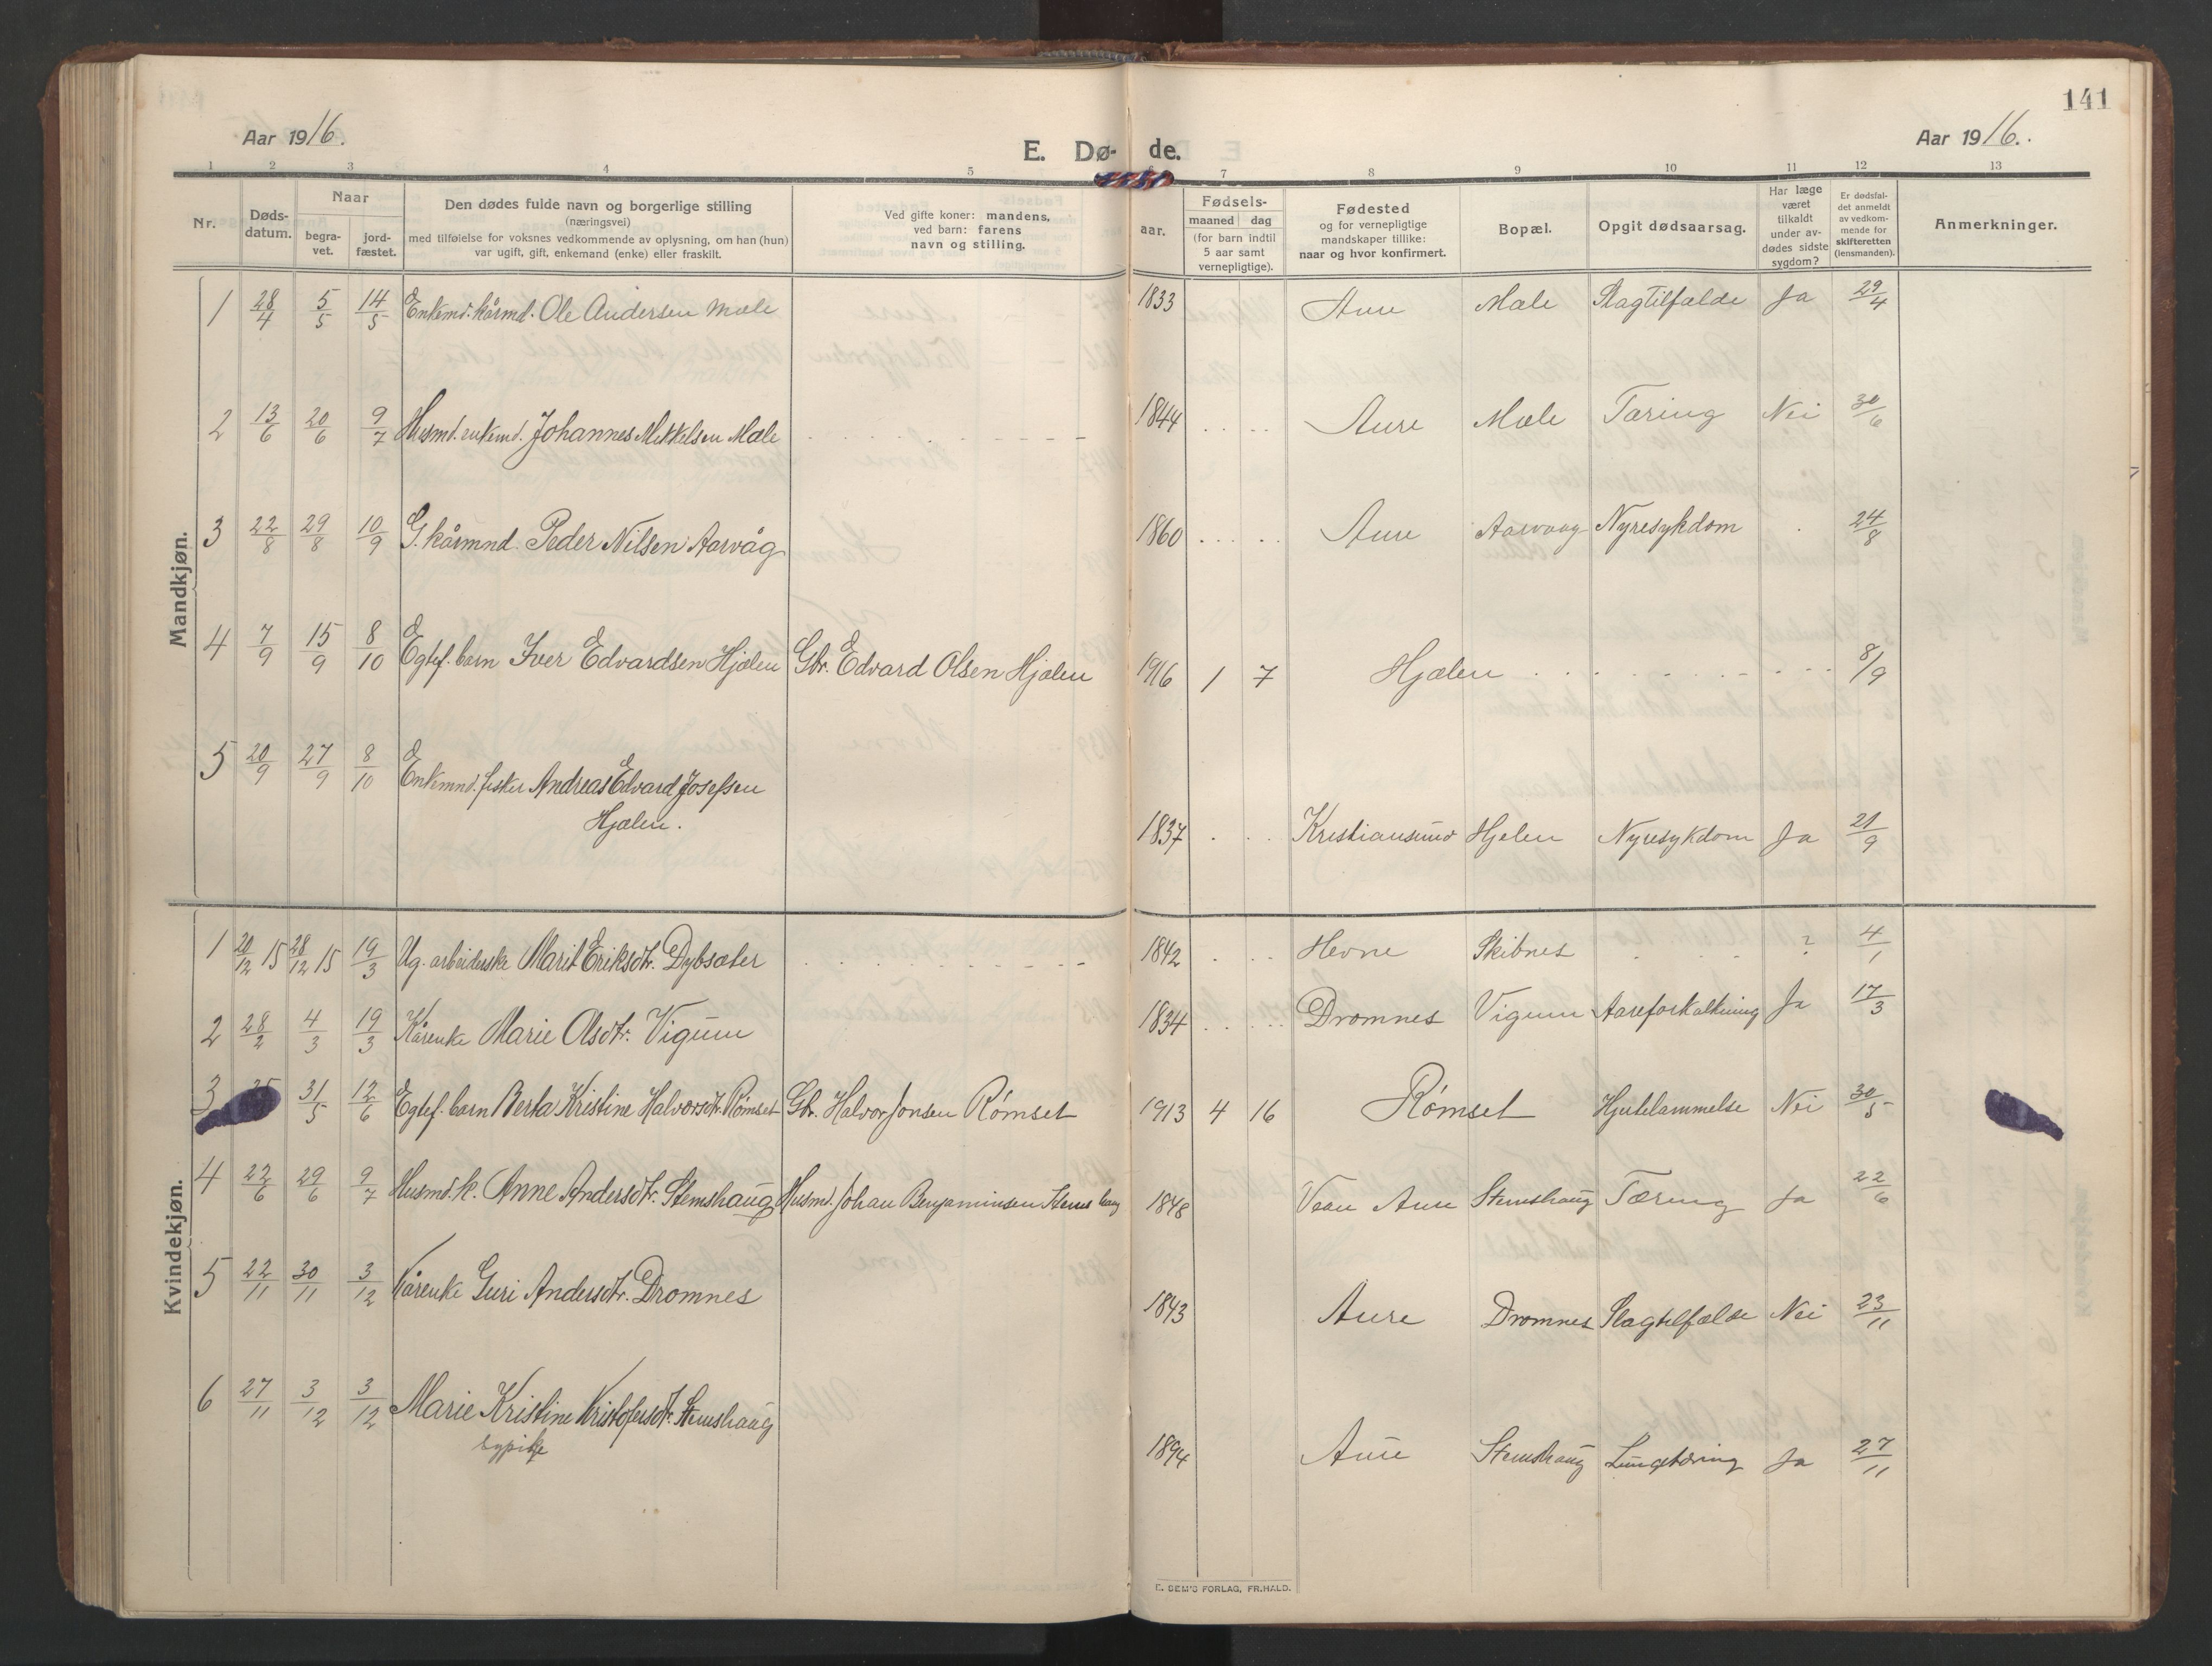 141
Aar 1916.
E. Dø- de.
Aar 1916.
1 2 3 4 5 7 8 9 10 11 12 13
Nr.
Døds-
datum.
Naar
begra-
vet.
jord-
fæstet.
Den dødes fulde navn og borgerlige stilling
(næringsvei)
med tilføielse for voksnes vedkommende av oplysning, om han (hun)
var ugift, gift, enkemand (enke) eller fraskilt.
Ved gifte koner: mandens,
ved barn: farens
navn og stilling.
Fødsels-
aar.
maaned dag
(for barn indtil
5 aar samt
vernepligtige).
Fødested
og for vernepligtige
mandskaper tillike:
naar og hvor konfirmert.
Bopæl.
Opgit dødsaarsag.
Har læge
været
tilkaldt
under av-
dødes sidste
sygdom?
Er dødsfal-
det anmeldt
av vedkom-
mende for
skifteretten
(lensmanden).
Anmerkninger.
Mandkjøn.
1 28/4 5/5 14/5 Enkemd. kårmd. Ole Andersen Mæle 1833 Aure Mæle Slagtilfælde Ja 29/4
2 13/6 20/6 9/7 Husmd. enkemd. Johannes Mikkelsen Mæle 1844 Aure Mæle Tæring Nei 30/6
3 22/8 29/8 10/9 G. kårmnd. Peder Nilsen Aarvåg 1860 Aure Aarvaag Nyresykdom 24/8
4 7/9 15/9 8/10 Egtef. barn Iver Edvardsen Hjælen Gbr. Edvard Olsen Hjælen 1916 1 7 Hjælen 8/9
5 20/9 27/9 8/10 Enkemnd. fisker Andreas Edvard Josefsen
Hjælen. 1837 Kristiansund Hjelen Nyresykdom Ja 21/9
Kvindekjøn.
1 20/12 15 28/12 15 19/3 Ug. arbeiderske Marit Eriksdtr. Dybsæter 1842 Hevne Skibnes ? 4/1
2 28/2 4/3 19/3 Kårenke Marie Olsdtr. Vigum 1834 Dromnes Vigum Aareforkalkning Ja 17/3
3 31/5 12/6 Egtef. barn Berta Kristine Halvorsdtr. Rømset Gbr. Halvor Jonsen Rømset 1913 4 16 Rømset Hjertelammelse Nei 30/5
4 22/6 29/6 9/7 Husmd. k. Anne Andersdtr. Stemshaug Husmd. Johan Benjaminsen Stemshaug 1848 Aure Stemshaug Tæring Ja 22/6
5 22/11 30/11 3/12 Kårenke Guri Andersdtr. Dromnes 1843 Aure Dromnes Slagtilfælde Nei 23/11
6 27/11 3/12 3/12 Marie Kristine Kristofersdtr. Stemshaug
sypike 1894 Aure Stemshaug Lungetæring Ja 27/11
E. SEM'S FORLAG, FR.HALD.